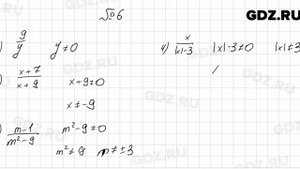 №6
GDZ.RU
) 9/y y≠0
4) x/|x|-3 |x|-3≠0 |x|≠3
) x+7/x+9 x+9≠0
x≠-9
) m-1/m²-9 m²-9≠0
m²≠9 m≠±3